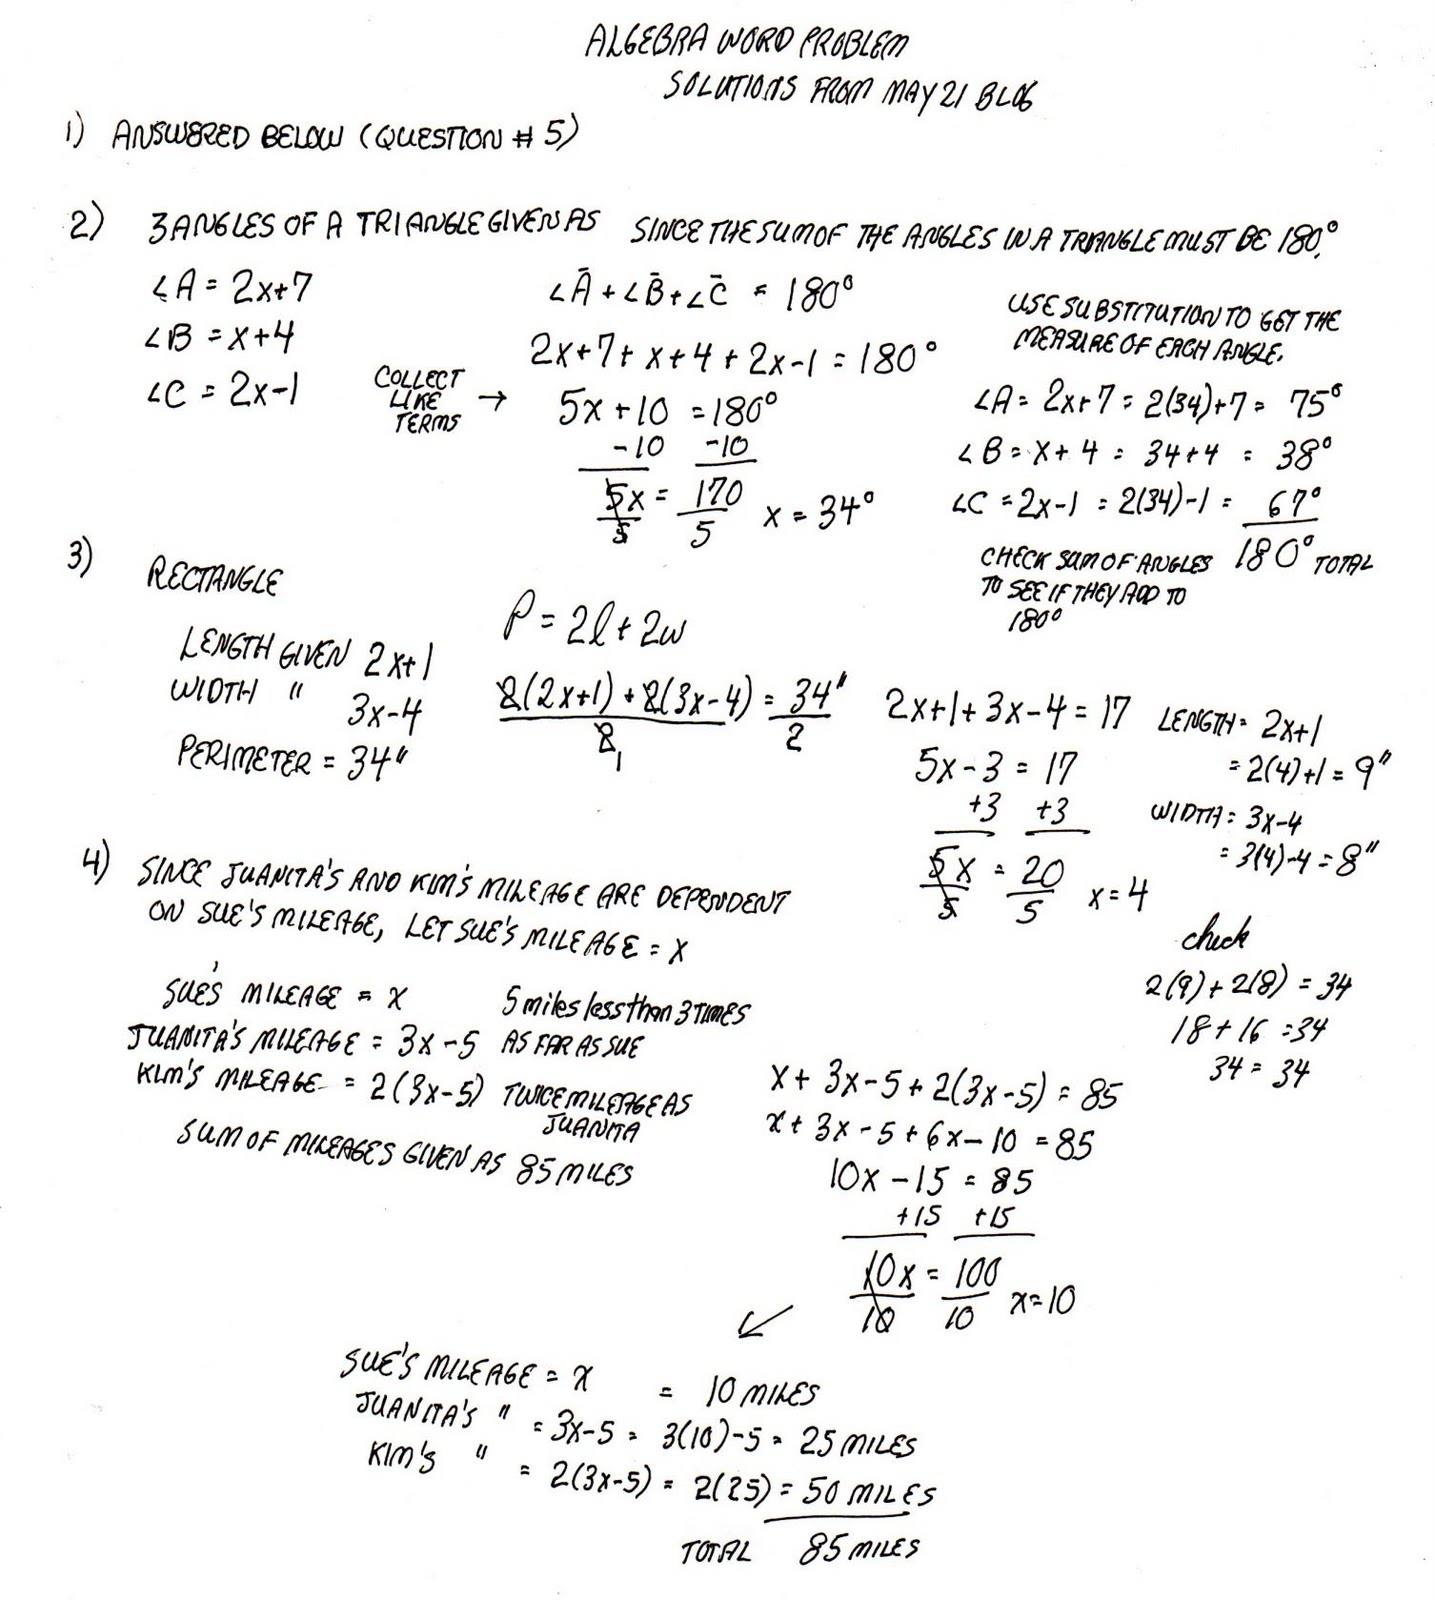 ALGEBRA WORD PROBLEM
SOLUTIONS FROM MAY 21 BLOG
1) ANSWERED BELOW (QUESTION # 5)
2) 3 ANGLES OF A TRIANGLE GIVEN AS
∠A = 2x+7
∠B = x+4
∠C = 2x-1
SINCE THE SUM OF THE ANGLES IN A TRIANGLE MUST BE 180°,
∠Ā + ∠B̄ + ∠C̄ = 180°
2x+7+x+4+2x-1 = 180°
COLLECT
LIKE
TERMS →
5x + 10 = 180°
-10 -10
5x/5 = 170/5 x = 34°
USE SUBSTITUTION TO GET THE
MEASURE OF EACH ANGLE.
∠A = 2x+7 = 2(34)+7 = 75°
∠B = x+4 = 34+4 = 38°
∠C = 2x-1 = 2(34)-1 = 67°
180° TOTAL
CHECK SUM OF ANGLES
TO SEE IF THEY ADD TO
180°
3) RECTANGLE
LENGTH GIVEN 2x+1
WIDTH " 3x-4
PERIMETER = 34"
P = 2l + 2w
2(2x+1) + 2(3x-4) = 34"
2 2
1
2x+1+3x-4 = 17
5x-3 = 17
+3 +3
5x/5 = 20/5 x=4
LENGTH = 2x+1
= 2(4)+1 = 9"
WIDTH = 3x-4
= 3(4)-4 = 8"
check
2(9) + 2(8) = 34
18 + 16 = 34
34 = 34
4) SINCE JUANITA'S AND KIM'S MILEAGE ARE DEPENDENT
ON SUE'S MILEAGE, LET SUE'S MILEAGE = x
SUE'S MILEAGE = x
JUANITA'S MILEAGE = 3x-5
KIM'S MILEAGE = 2(3x-5)
5 miles less than 3 TIMES
AS FAR AS SUE
TWICE MILEAGE AS
JUANITA
SUM OF MILEAGES GIVEN AS 85 MILES
x + 3x-5 + 2(3x-5) = 85
x + 3x-5 + 6x-10 = 85
10x - 15 = 85
+15 +15
10x/10 = 100/10 x=10
SUE'S MILEAGE = x = 10 MILES
JUANITA'S " = 3x-5 = 3(10)-5 = 25 MILES
KIM'S " = 2(3x-5) = 2(25) = 50 MILES
TOTAL 85 MILES